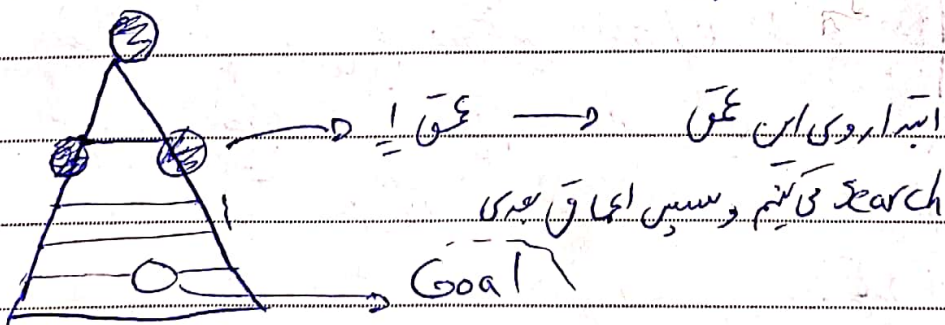 ابتدا روی این عمق → عمق 1
Search می‌کنیم و سپس اعماق بعدی
Goal